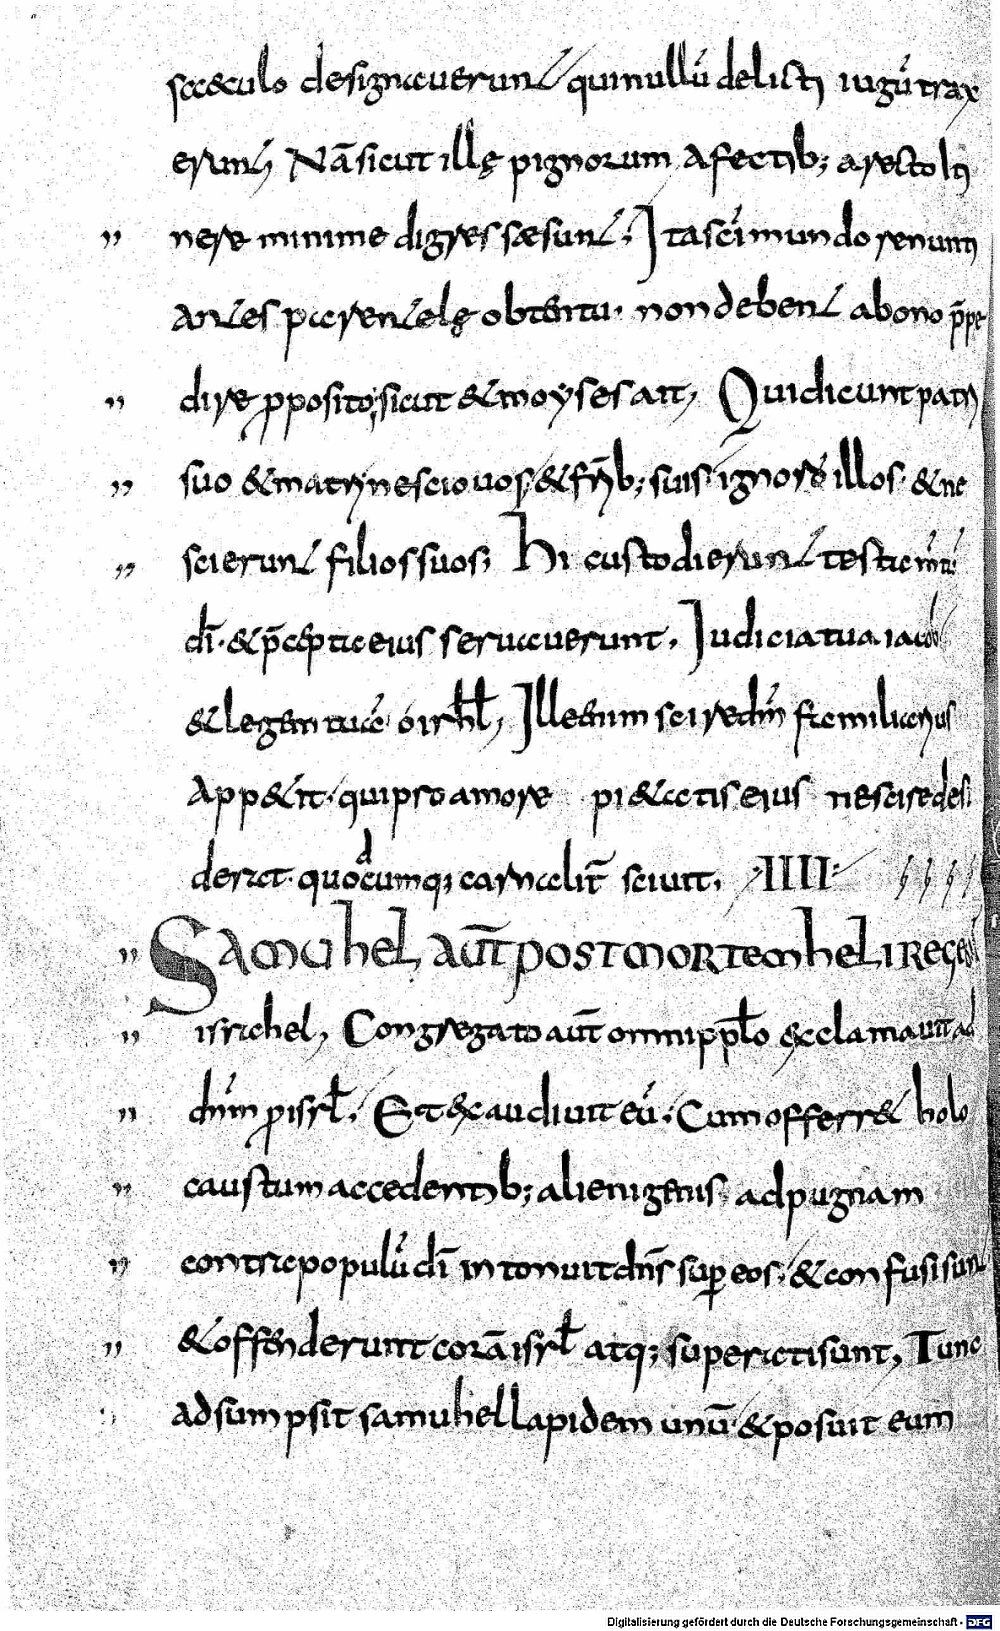 saeculo designaverunt qui nullū delicti iugū trax
erunt, Nā sicut illę pignorum afectib; a recto iti
nere minime digressae sunt. Ita scī mundo renunti
antes parentelę obtentu. non debent a bono p̄pe
dire proposito; sicut & moyses ait, Qui dicunt patri
suo & matri nescio vos, & frīb; suis ignoro illos. & ne
scierunt filios suos; Hi custodierunt testamtū
dī. & p̄cepta eius servaverunt. Iudicia tua iacob
& legem tuā o isrhl, Ille enim sci redīn familiarius
appetit. qui pro amore pietatis eius nescire desi
derat. quodcumq; carnalit̄ scivit, · IIII ·
Samuhel aūt post mortem heli regebat
israhel, Congregato aūt omni pplo exclamavit ad
dnm pro isrl. Et exaudivit eū. Cum offerret holo
caustum accedentib; alienigenis ad pugnam
contra populū dī intonuit dns super eos. & confusi sunt
& offenderunt corā isrl atq; superati sunt, Tunc
adsumpsit samuhel lapidem unū & posuit eum
Digitalisierung gefördert durch die Deutsche Forschungsgemeinschaft - DFG